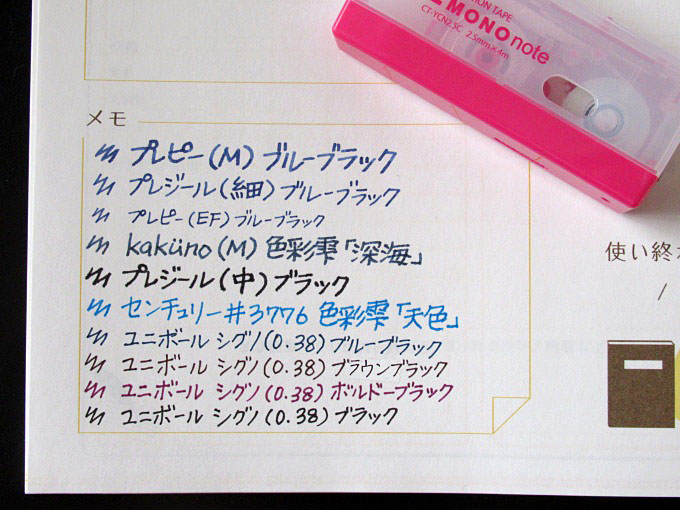 TION TAPE
MONO note
CT-YCN2.5C 2.5mm×4m
メモ
プレピー(M) ブルーブラック
プレジール(細) ブルーブラック
プレピー(EF) ブルーブラック
kaküno(M) 色彩雫「深海」
プレジール(中) ブラック
センチュリー#3776 色彩雫「天色」
ユニボール シグノ(0.38) ブルーブラック
ユニボール シグノ(0.38) ブラウンブラック
ユニボール シグノ(0.38) ボルドーブラック
ユニボール シグノ(0.38) ブラック
使い終
/